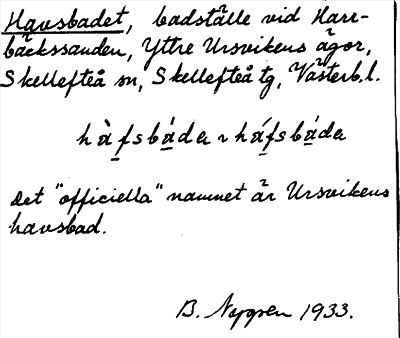 Havsbadet, badställe vid Harr-
bäckssanden, Yttre Ursvikens ägor,
Skellefteå sn, Skellefteå tg, Västerb. l.
hàfsbáda ~ háfsbáda
Det "officiella" namnet är Ursvikens
havsbad.
B. Nygren 1933.